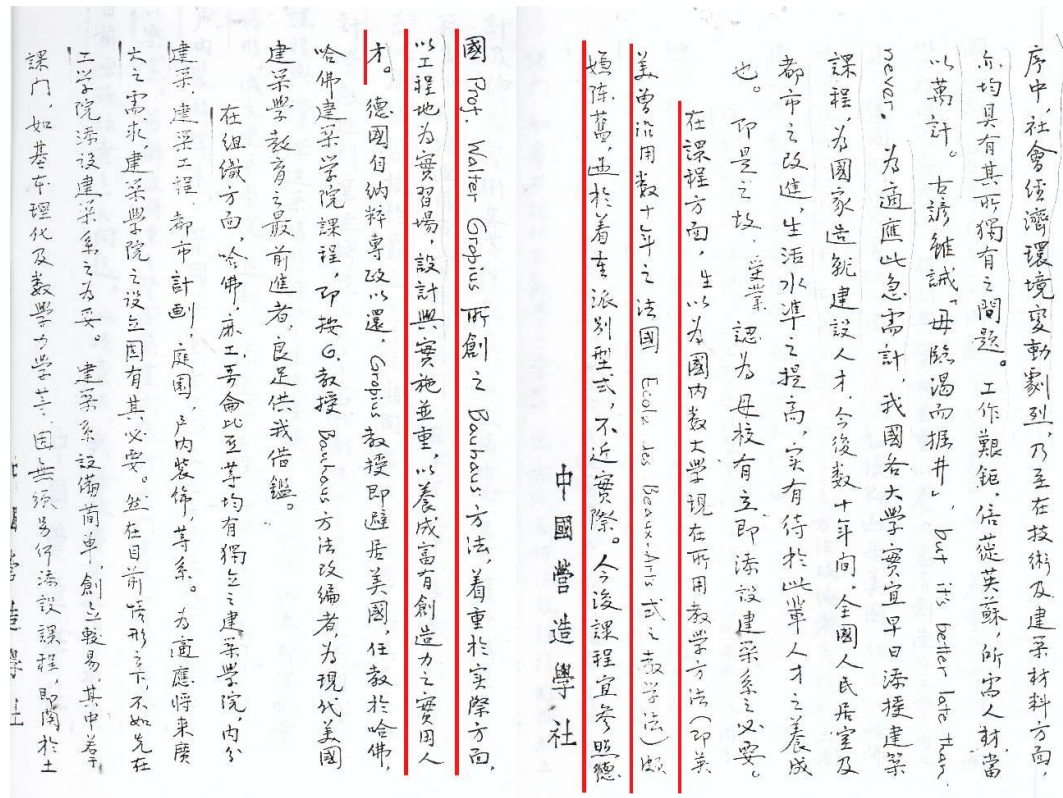 序中，社會經濟環境变動劇烈，乃至在技術及建築材料方面，
亦均具有其所獨有之問題。工作艱鉅，倍蓰英蘇，所需人材當
以萬計。古諺雖誡「毋臨渴而掘井」，but it's better late than
never。為適應此急需計，我國各大学實宜早日添授建築
課程，為國家造就建設人才，今後数十年间，全國人民居室及
都市之改進，生活水準之提高，实有待於此輩人才之養成
也。即是之故，受業認為母校有立即添設建築系之必要。
在課程方面，生以為國内数大学現在所用教学方法（即英
美曾沿用数十年之法國 Ecole des Beaux-Arts 式之教学法）頗
嫌陈舊，过於着重派别型式，不近實際。今後課程宜参照德
中國營造學社
國 Prof. Walter Gropius 所創之 Bauhaus 方法，着重於实際方面，
以工程地为實習場，設計與實施並重，以養成富有創造力之實用人
才。德國自纳粹專政以還，Gropius 教授即避居美國，任教於哈佛，
哈佛建築学院課程，即按 G. 教授 Bauhaus 方法改编者，为現代美國
建築學教育之最前進者，良足供我借鑑。
在组織方面，哈佛，麻工，哥侖比亚等均有獨立之建築学院，内分
建築，建築工程，都市計劃，庭園，户内装饰，等系。为適應将来廣
大之需求，建築學院之設立固有其必要。然在目前情形之下，不如先在
工学院添設建築系之为妥。建築系設備简单，創立較易，其中若干
課门，如基本理化及数學力学等，固無須另行添設課程，即関於土
中國營造學社